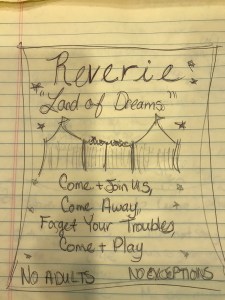 Reverie
"Land of Dreams"
Come + Join Us,
Come Away,
Forget Your Troubles,
Come + Play
NO ADULTS NO EXCEPTIONS